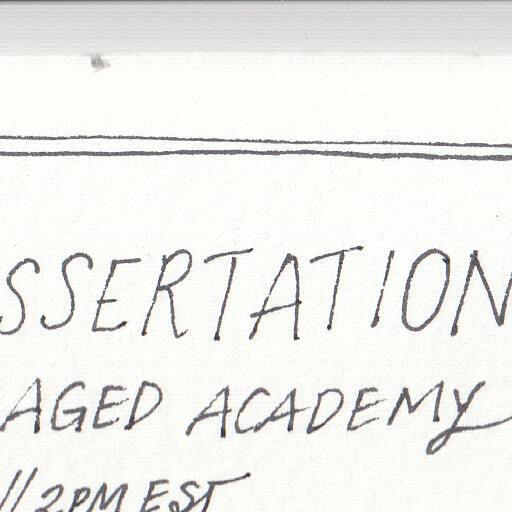 SSERTATION
AGED ACADEMY
// 2PM EST